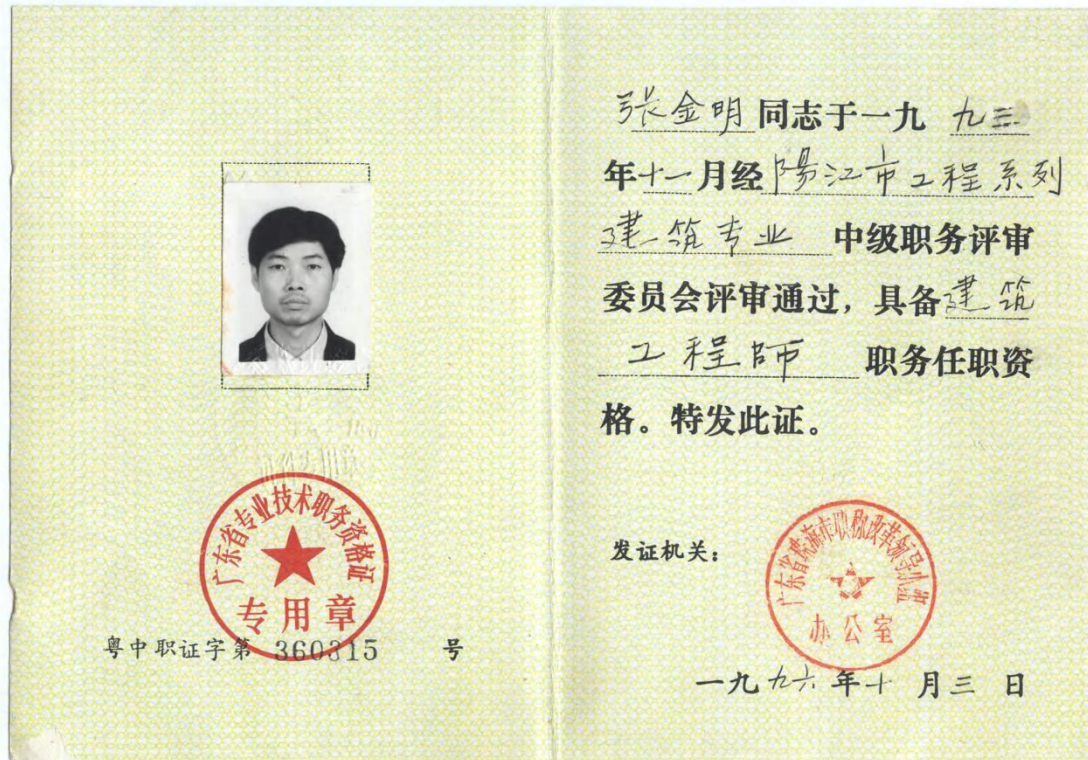 广东省专业技术职务资格证
专用章
粤中职证字第 360315 号
张金明同志于一九 九三
年十一月经陽江市工程系列
建筑专业 中级职务评审
委员会评审通过，具备建筑
工程師 职务任职资
格。特发此证。
发证机关：
广东省 市职称改革领导小组
办公室
一九九六年十月三日